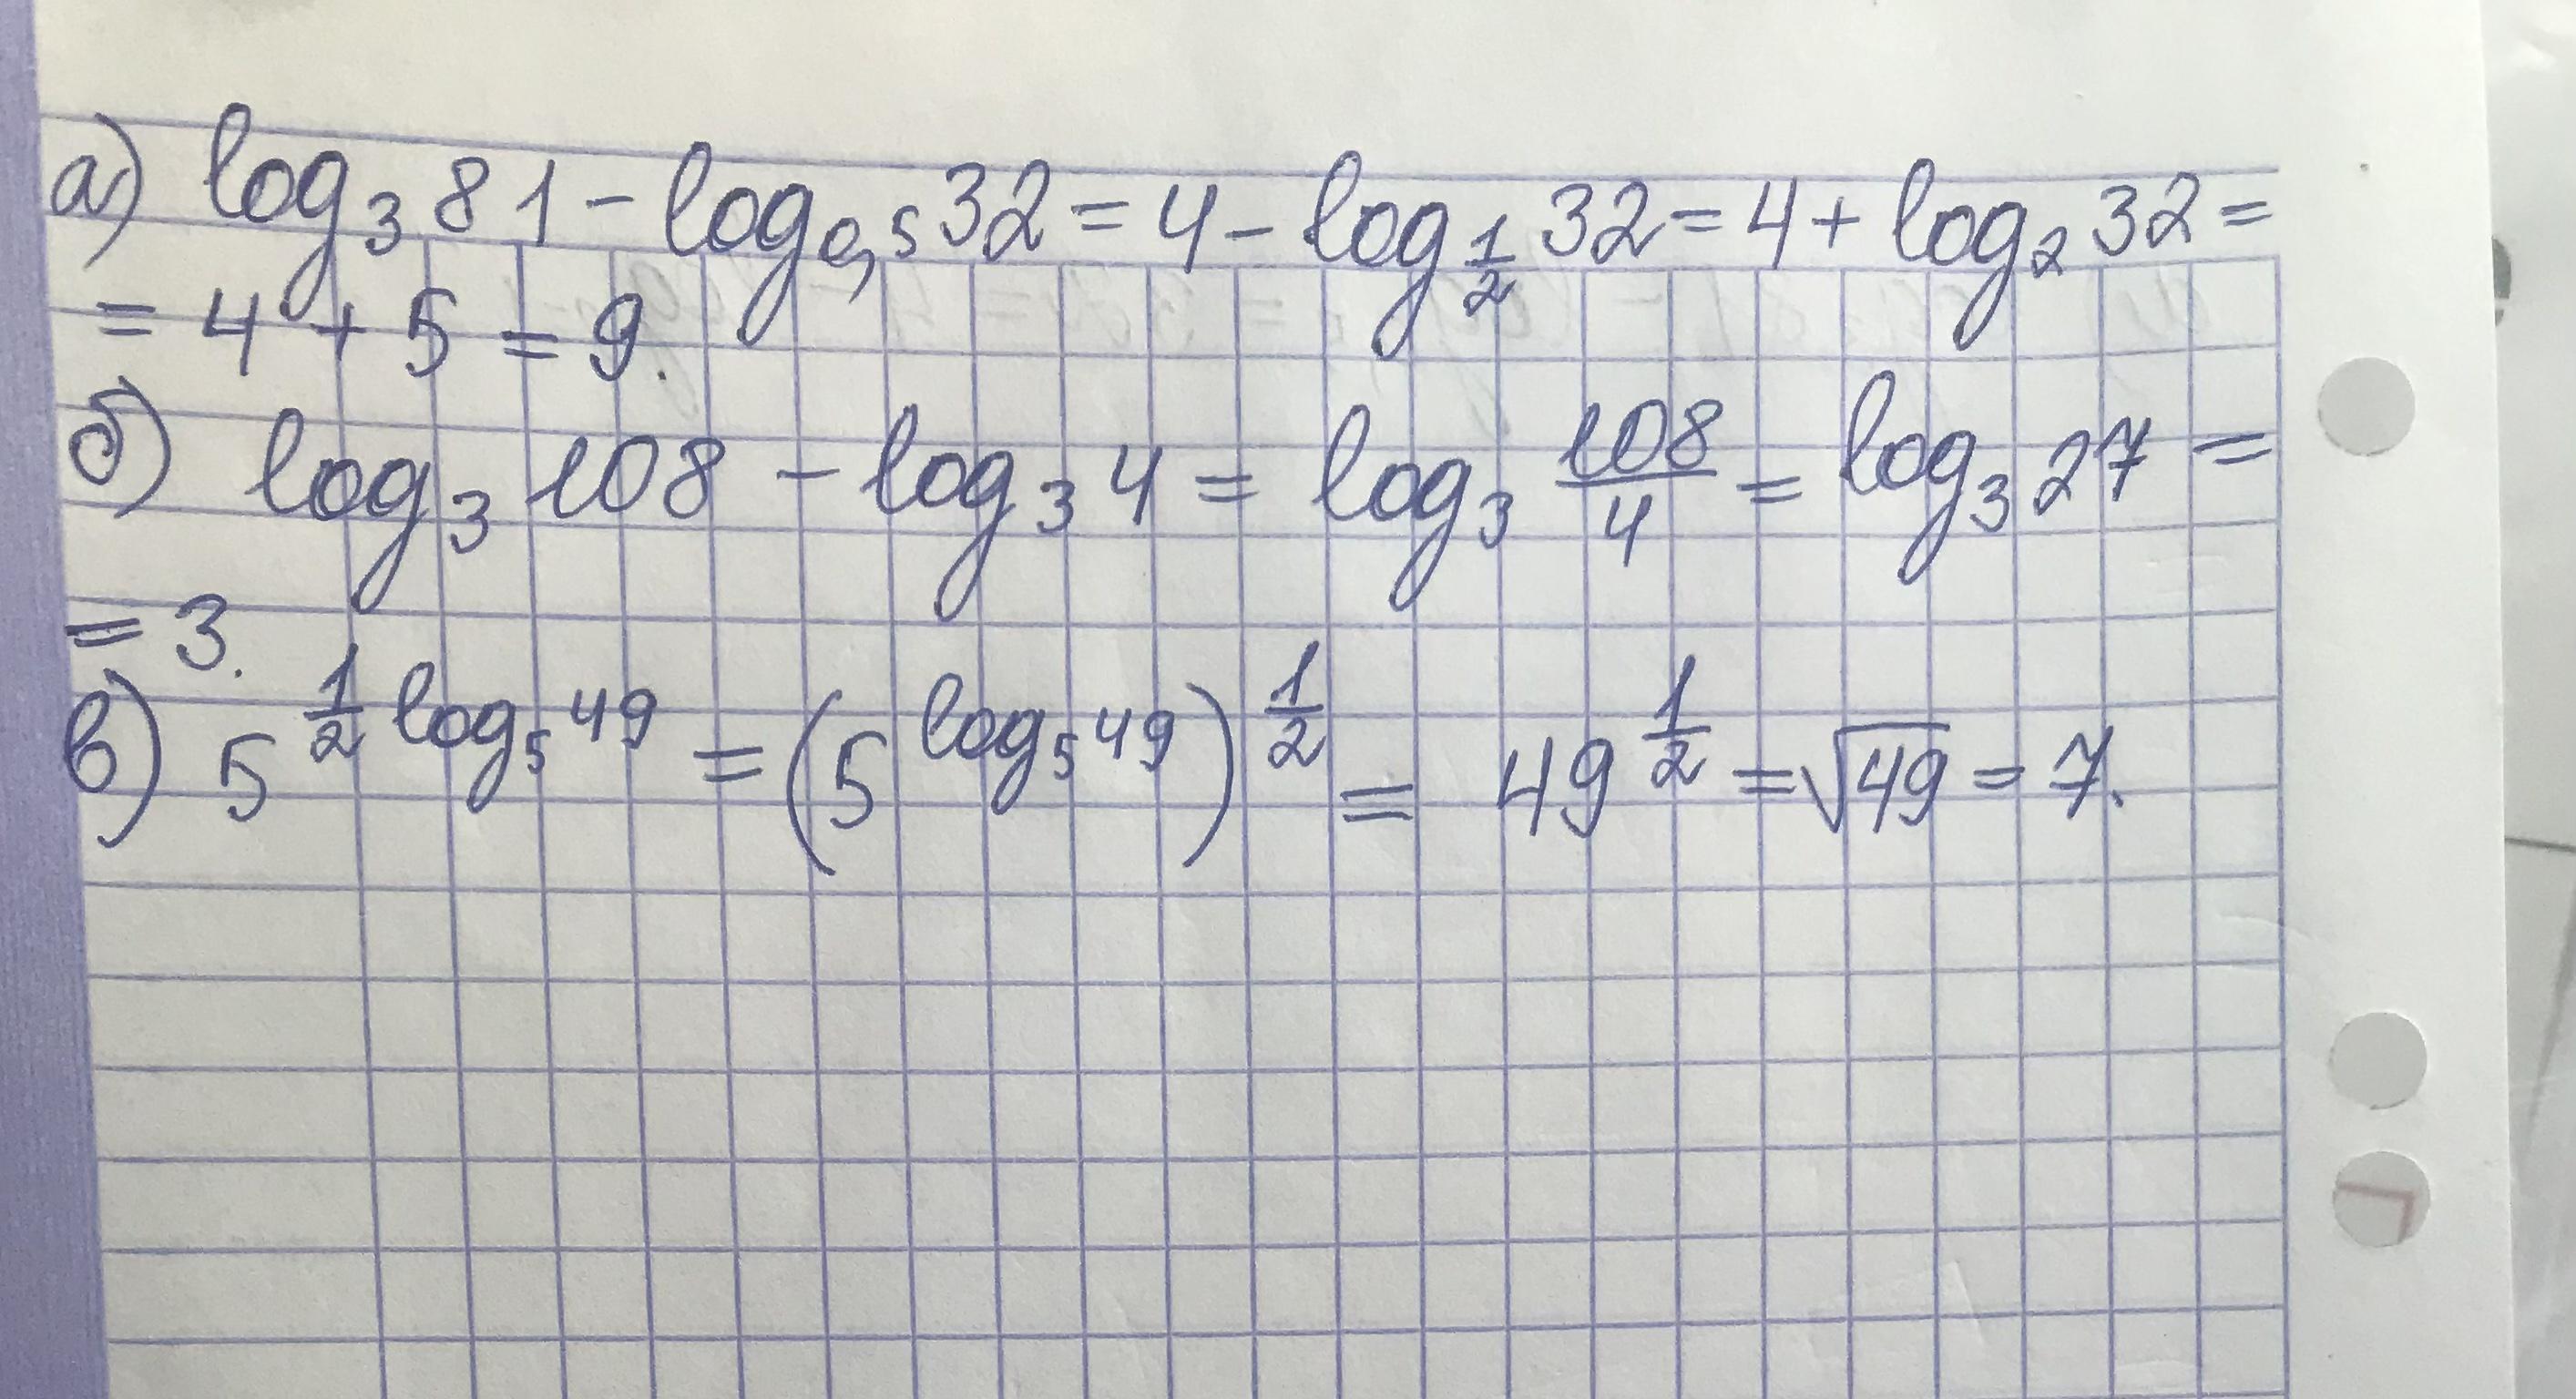 а) log₃ 81 - log₀,₅ 32 = 4 - log_{1/2} 32 = 4 + log₂ 32 =
= 4 + 5 = 9.
б) log₃ 108 - log₃ 4 = log₃ 108/4 = log₃ 27 =
= 3.
в) 5^{1/2 log₅ 49} = (5^{log₅ 49})^{1/2} = 49^{1/2} = √49 = 7.